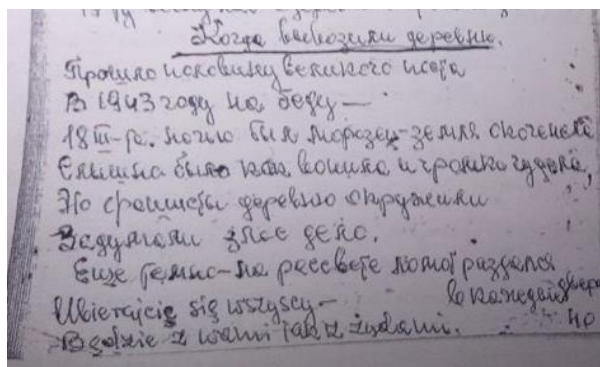 Когда вывозили деревню.
Прошло половину великого поста
В 1943 году на беду —
18 III-го. ночью был морозец-земля скоченела
Слышна было как и громка гудела,
Это фашисты деревню окружили
Задумали злое дело.
Еще темно-на рассвете раздался
в каждой двере
Ubierajcie się wszyscy —
Będzie z wami jak z żydami.